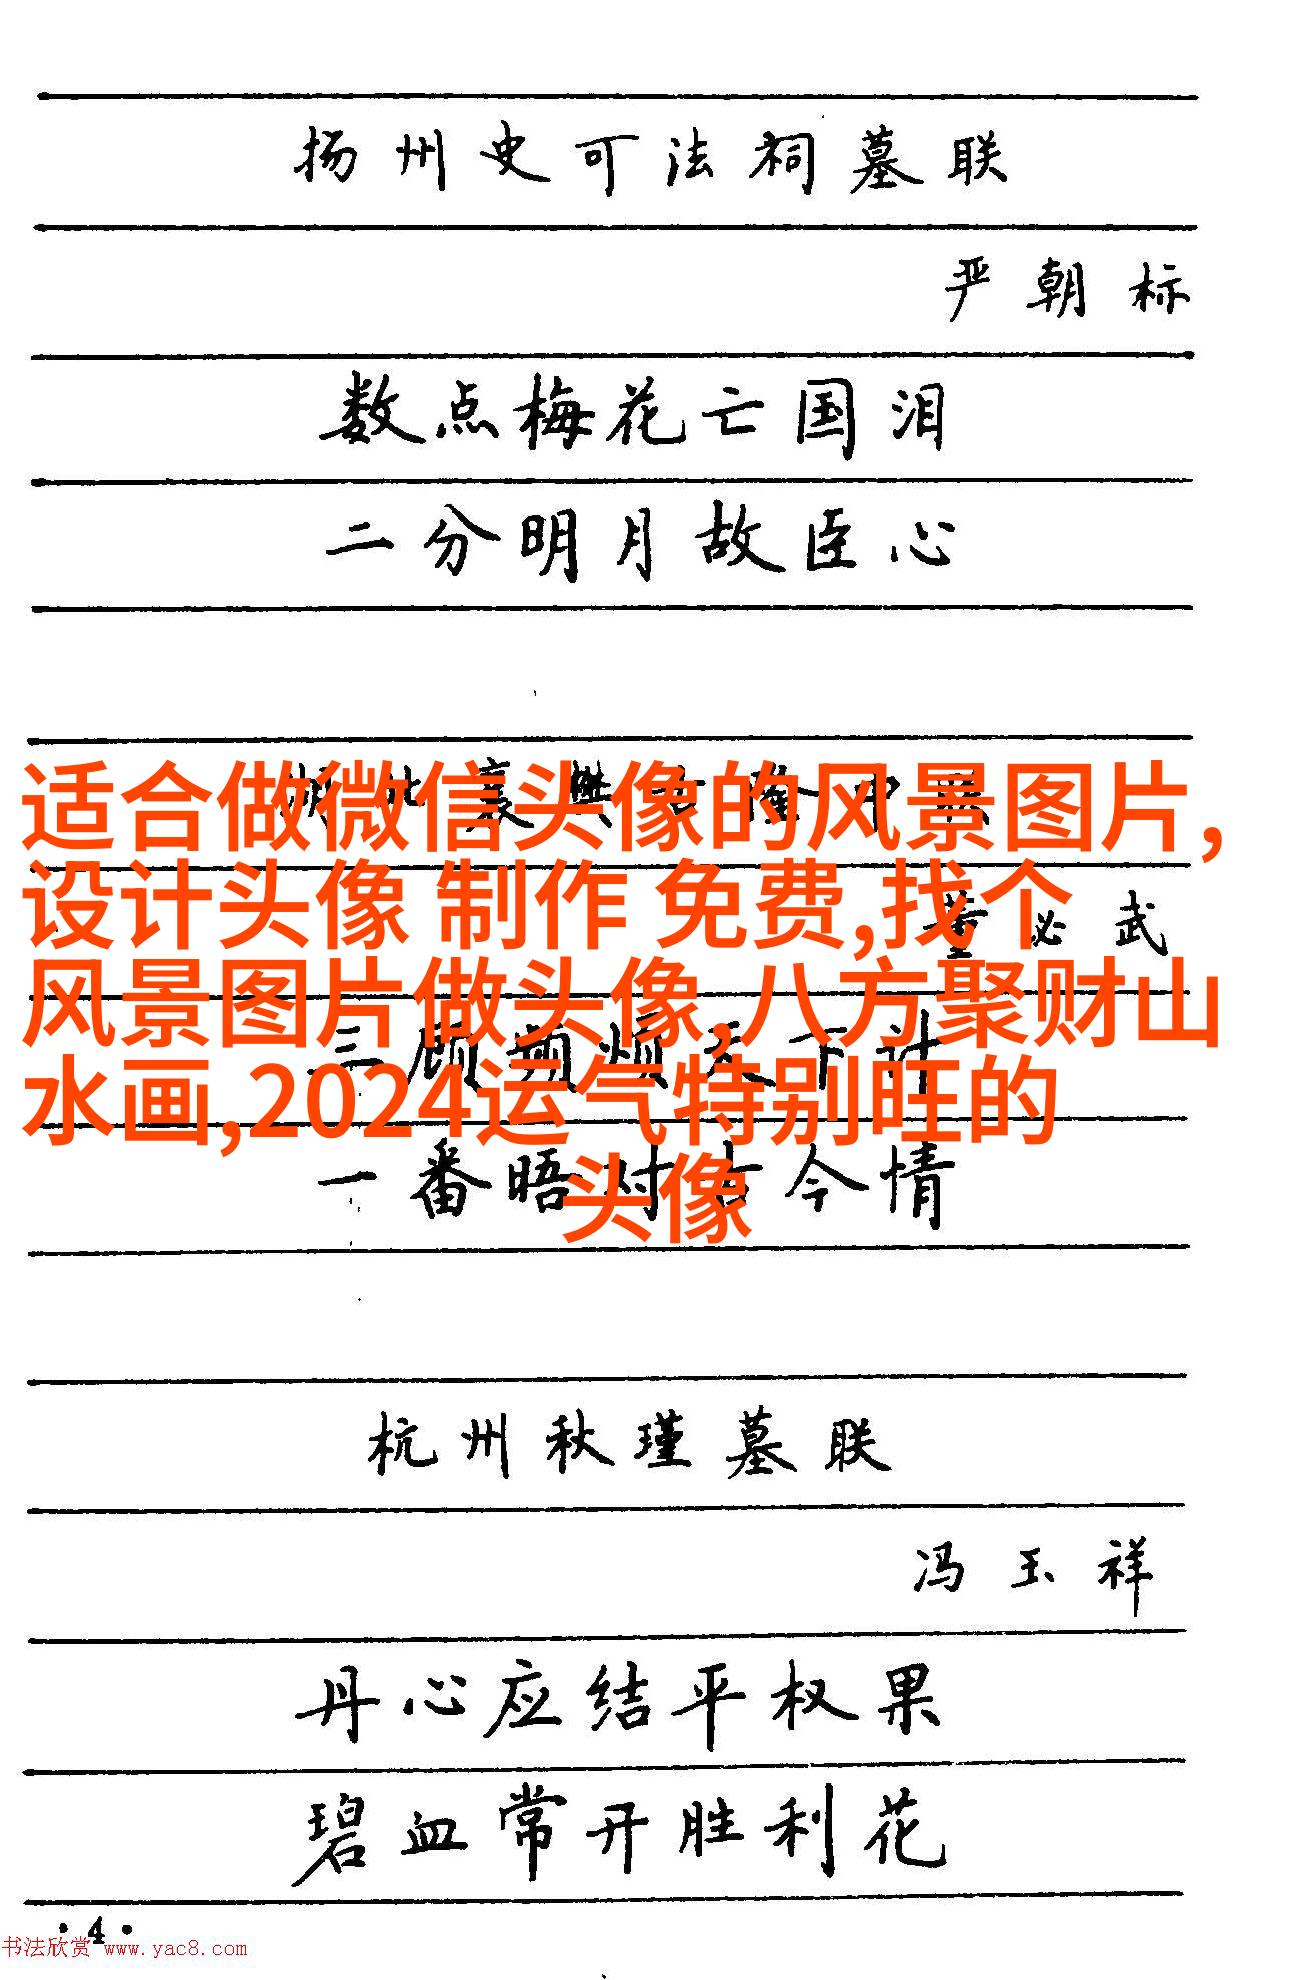 扬州史可法祠墓联
严朝标
数点梅花亡国泪
二分明月故臣心
适合做微信头像的风景图片,
设计头像 制作 免费,找个
董必武
风景图片做头像,八方聚财山
三顾频烦天下计
水画,2024运气特别旺的
一番晤对古今情
头像
杭州秋瑾墓联
冯玉祥
丹心应结平权果
碧血常开胜利花
·4·
书法欣赏 www.yac8.com